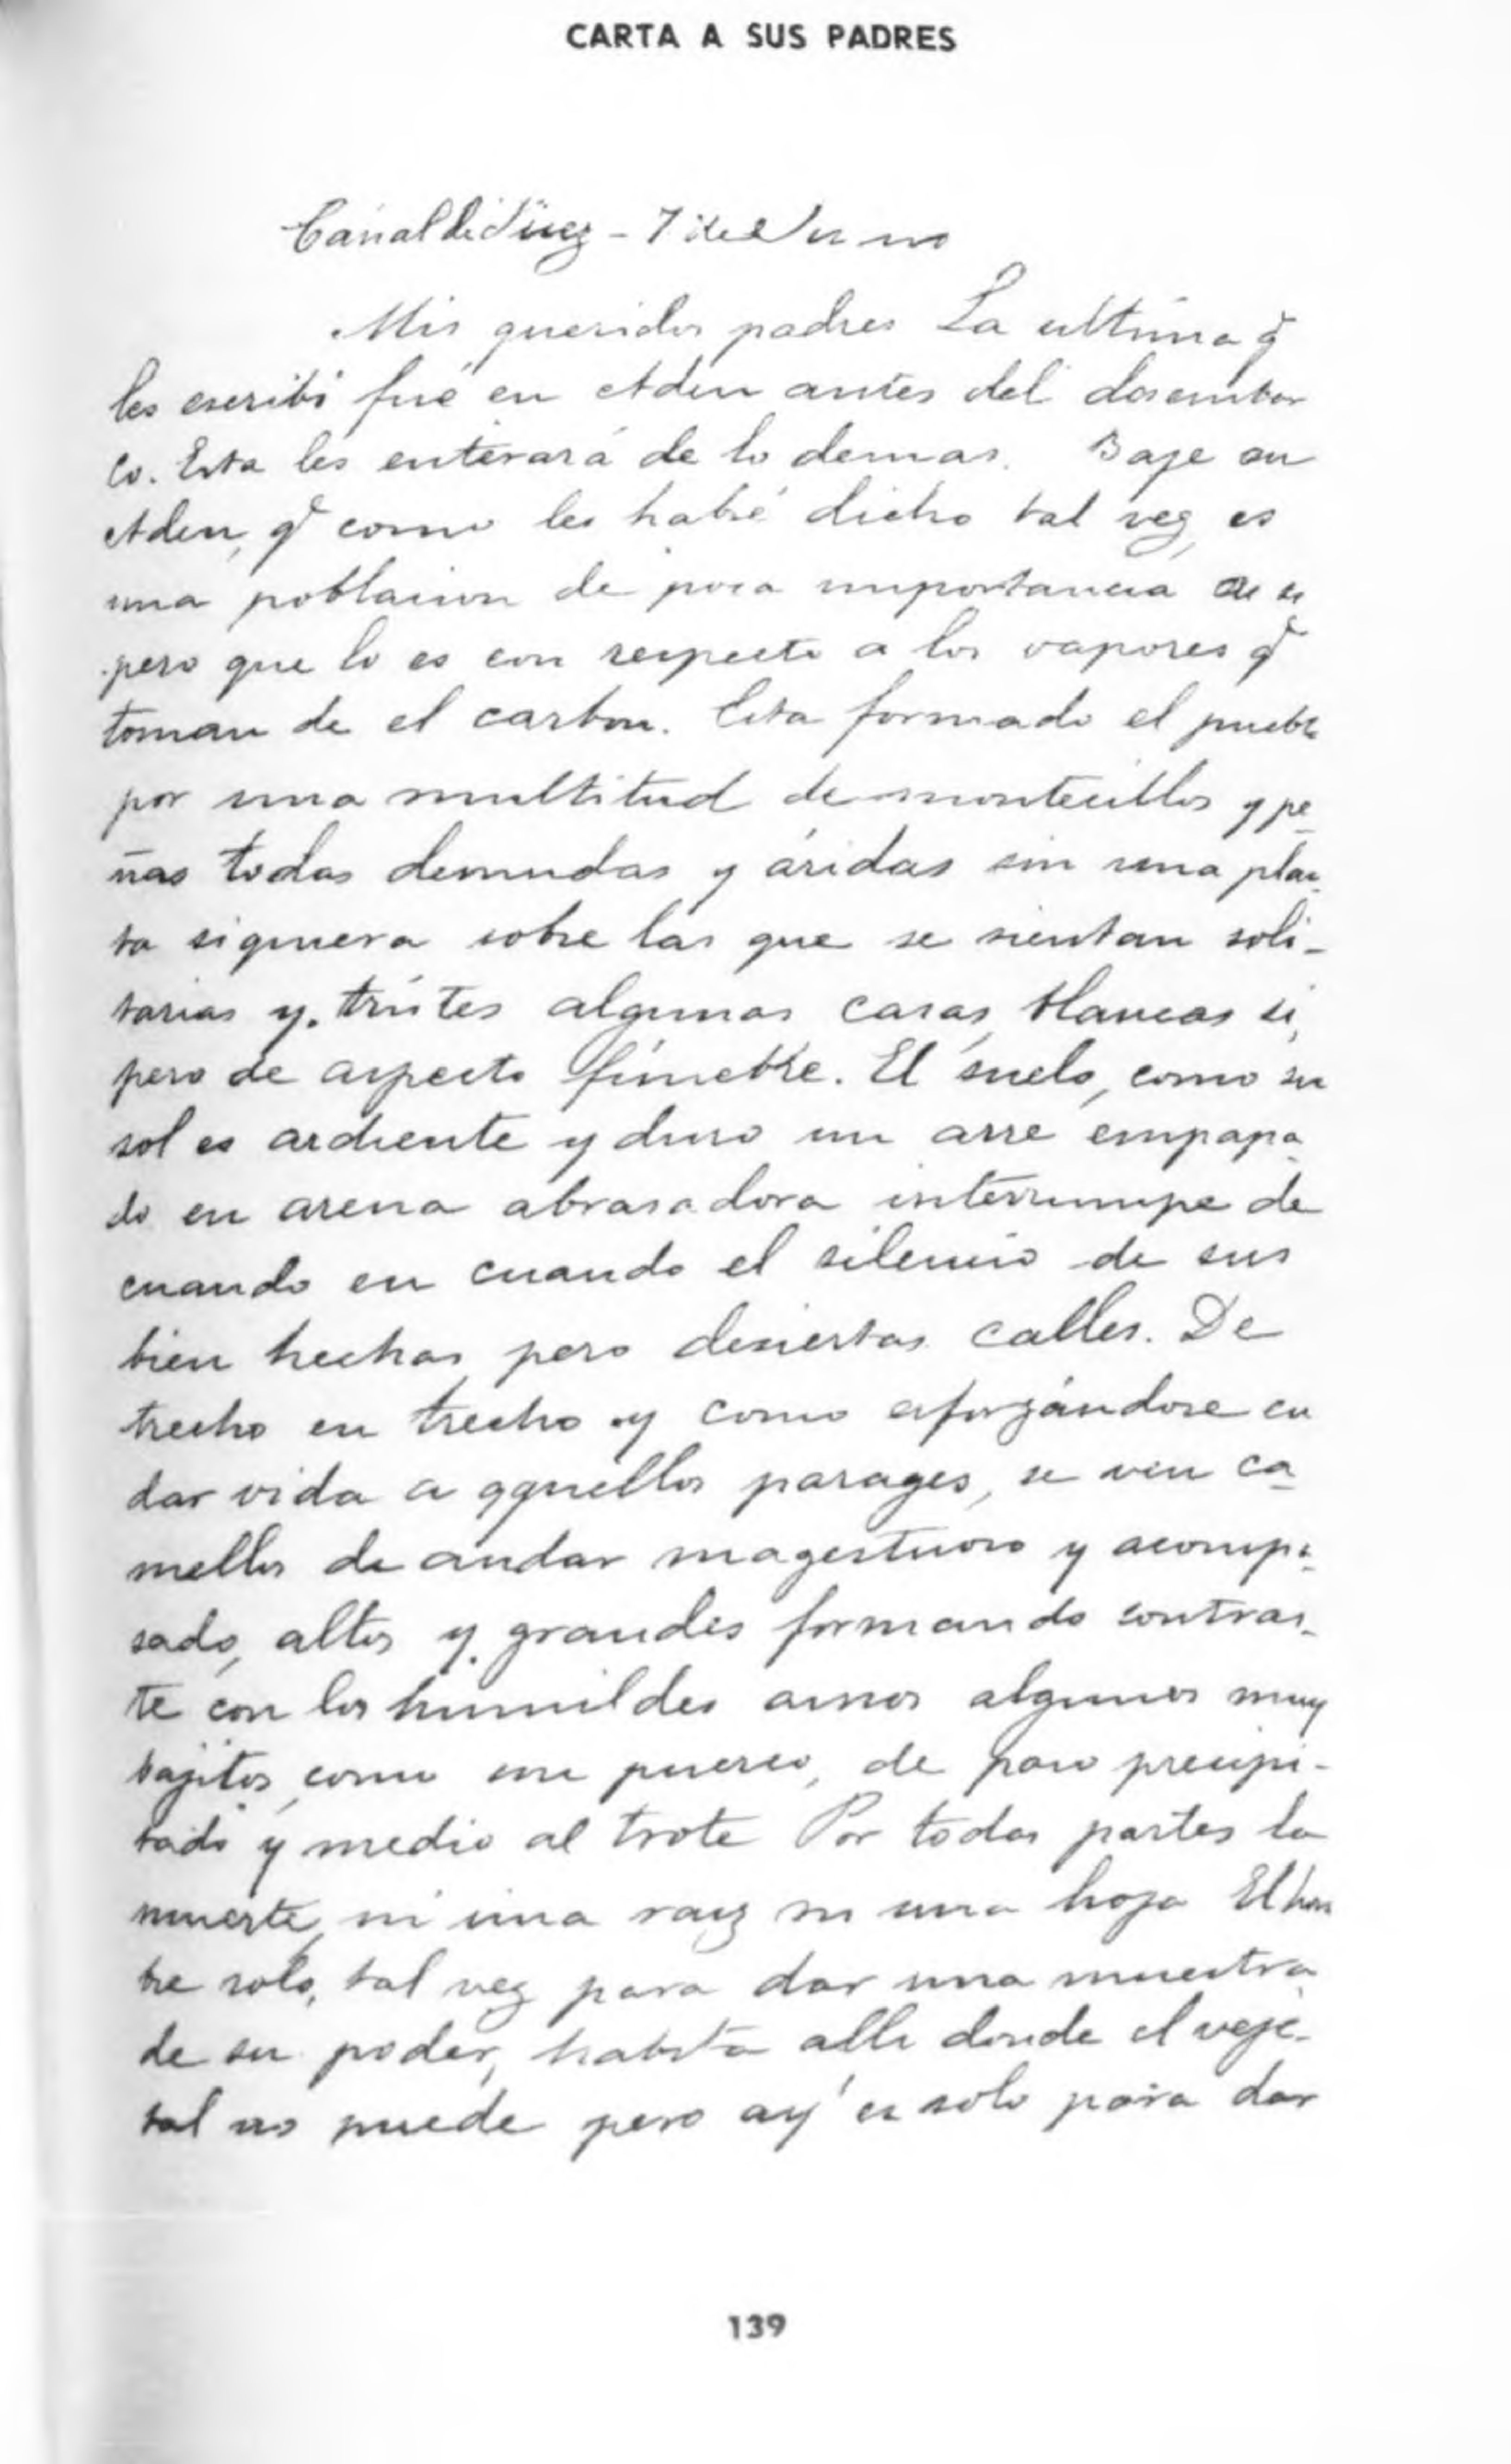 CARTA A SUS PADRES
Canal de Suez - 7 de Junio
Mis queridos padres La ultima q̃
les escribi fué en Aden antes del desembar
co. Esta les enterará de lo demas. Baje en
Aden, q̃ como les habré dicho tal vez, es
una poblacion de poca importancia de si
pero que lo es con respecto a los vapores q̃
toman de el carbon. Esta formado el pueblo
por una multitud de montecillos y pe
ñas todas desnudas y áridas sin una plan
ta siquiera sobre las que se sientan soli-
tarias y tristes algunas casas, blancas si,
pero de aspecto fúnebre. El suelo, como su
sol es ardiente y duro un aire empapa
do en arena abrasadora interrumpe de
cuando en cuando el silencio de sus
bien hechas pero desiertas calles. De
trecho en trecho y como esforzándose en
dar vida a aquellos parages, se ven ca
mellos de andar magestuoso y acompa
sado, altos y grandes formando contras
te con los humildes asnos algunos muy
bajitos, como un puerco, de paso precipi-
tado y medio al trote Por todas partes la
muerte, ni una raiz ni una hoja El hom
bre solo, tal vez para dar una muestra
de su poder, habita alli donde el veje-
tal no puede pero ay! es solo para dar
139